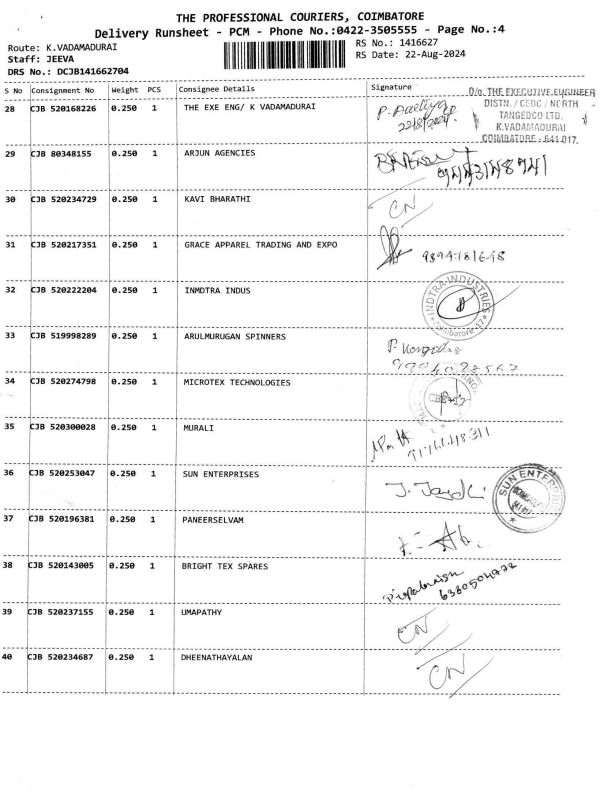 THE PROFESSIONAL COURIERS, COIMBATORE
Delivery Runsheet - PCM - Phone No.:0422-3505555 - Page No.:4
Route: K.VADAMADURAI
Staff: JEEVA
DRS No.: DCJCB141662704
RS No.: 1416627
RS Date: 22-Aug-2024
S No Consignment No Weight PCS Consignee Details Signature
28 CJB 520168226 0.250 1 THE EXE ENG/ K VADAMADURAI
22/8/2024
O/o. THE EXECUTIVE ENGINEER
DISTN. / CEDC / NORTH
TANGEDCO LTD.
K.VADAMADURAI
COIMBATORE - 641 017.
29 CJB 80348155 0.250 1 ARJUN AGENCIES
30 CJB 520234729 0.250 1 KAVI BHARATHI CN
31 CJB 520217351 0.250 1 GRACE APPAREL TRADING AND EXPO
32 CJB 520222204 0.250 1 INMDTRA INDUS
INDTRA INDUSTRIES
Coimbatore-17
33 CJB 519998289 0.250 1 ARULMURUGAN SPINNERS
34 CJB 520274798 0.250 1 MICROTEX TECHNOLOGIES
35 CJB 520300028 0.250 1 MURALI
36 CJB 520253047 0.250 1 SUN ENTERPRISES
SUN ENTERPRISE
37 CJB 520196381 0.250 1 PANEERSELVAM
38 CJB 520143005 0.250 1 BRIGHT TEX SPARES
39 CJB 520237155 0.250 1 UMAPATHY CN
40 CJB 520234687 0.250 1 DHEENATHAYALAN CN